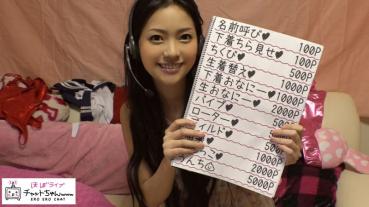 名前呼び♥ 100P
下着ちら見せ♥ 100P
ちくび♥ 500P
生着替え♥ 1000P
下着おなにー♥ 1000P
生おなにー♥ 2000P
バイブ♥ 2000P
ローター♥ 500P
♥ 500P
♥ 1000P
2000P
5000P
ほぼライブ
チャットちゃんwww
ERO ERO CHAT